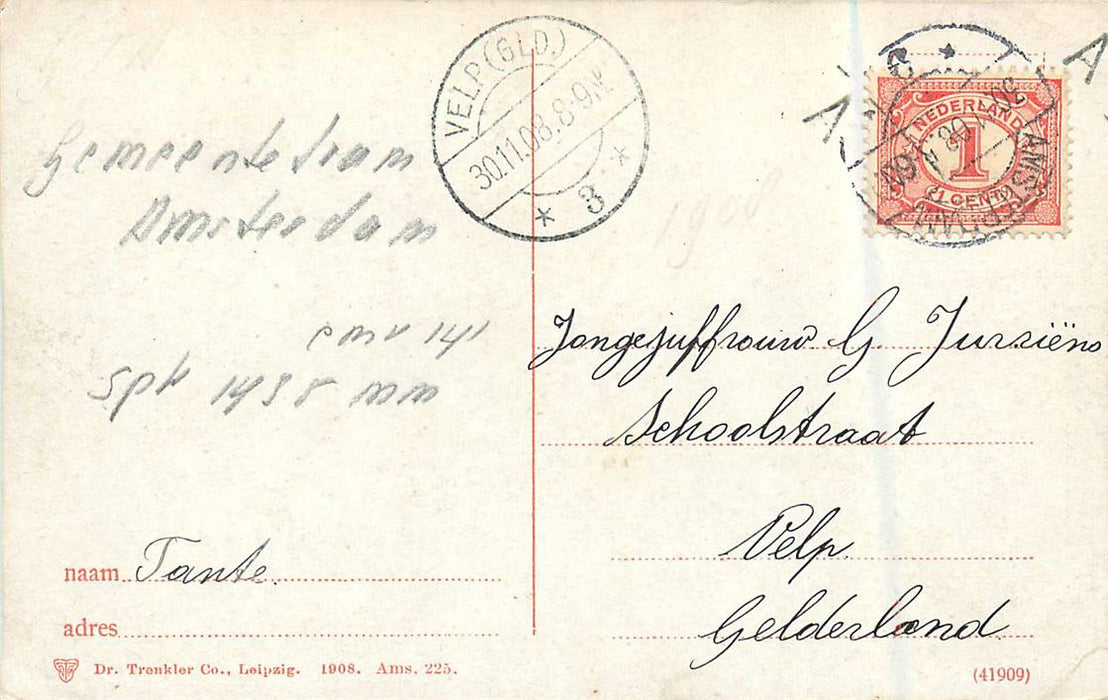 VELP (GLD.)
30.11.08.8-9N.
3
NEDERLAND
1
1 CENT
AMSTERDAM
Gemeentetram
Amsterdam
1908
141
Spk 1438 mm
Jongejuffrouw G. Jurriëns
Schoolstraat
Velp.
Gelderland
naam Tante.
adres
Dr. Trenkler Co., Leipzig. 1908. Ams. 225.
(41909)